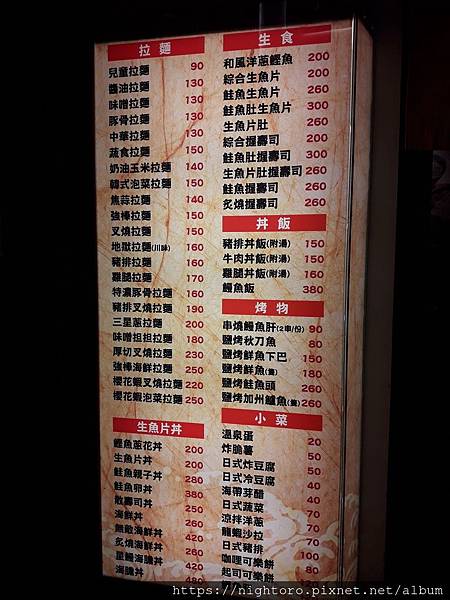 拉麵
兒童拉麵 90
醬油拉麵 130
味噌拉麵 130
豚骨拉麵 130
中華拉麵 130
蔬食拉麵 130
奶油玉米拉麵 140
韓式泡菜拉麵 150
焦蒜拉麵 140
強棒拉麵 150
叉燒拉麵 150
地獄拉麵(川味) 160
豬排拉麵 160
雞腿拉麵 170
特濃豚骨拉麵 160
豬排叉燒拉麵 190
三星蔥拉麵 200
味噌担担拉麵 180
厚切叉燒拉麵 230
強棒海鮮拉麵 250
櫻花蝦叉燒拉麵 220
櫻花蝦泡菜拉麵 250
生魚片丼
鰹魚蔥花丼 200
生魚片丼 200
鮭魚親子丼 280
鮭魚卵丼 380
散壽司丼 250
海鮮丼 260
無敵海鮮丼 420
炙燒海鮮丼 260
星鰻海膽丼 420
海膽丼 480
生食
和風洋蔥鰹魚 200
綜合生魚片 200
鮭魚生魚片 260
鮭魚肚生魚片 300
生魚片肚 260
綜合握壽司 200
鮭魚肚握壽司 300
生魚片肚握壽司 260
鮭魚握壽司 260
炙燒握壽司 260
丼飯
豬排丼飯(附湯) 150
牛肉丼飯(附湯) 150
雞腿丼飯(附湯) 160
鰻魚飯 380
烤物
串燒鰻魚肝(2串/份) 90
鹽烤秋刀魚 80
鹽烤鮮魚下巴 150
鹽烤鮮魚 180
鹽烤鮭魚頭 260
鹽烤加州鱸魚 260
小菜
溫泉蛋 20
炸脆薯 50
日式炸豆腐 50
日式冷豆腐 40
海帶芽醋 40
日式蔬菜 50
涼拌洋蔥 70
龍蝦沙拉 70
日式豬排 100
咖哩可樂餅 80
起司可樂餅
https://nightoro.pixnet.net/album